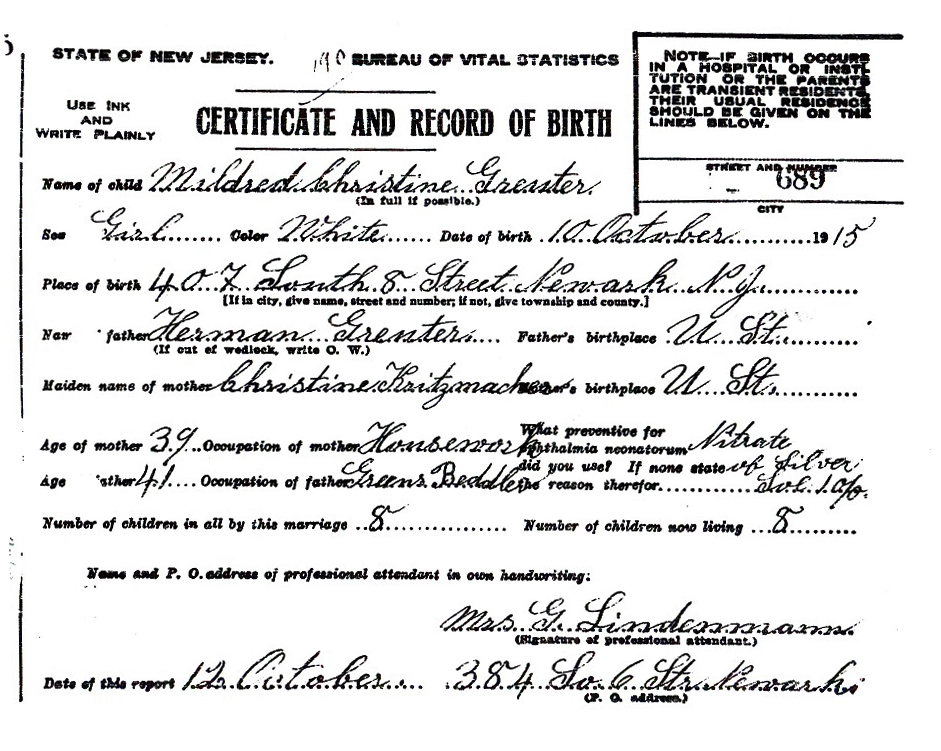 STATE OF NEW JERSEY. BUREAU OF VITAL STATISTICS
USE INK
AND
WRITE PLAINLY
CERTIFICATE AND RECORD OF BIRTH
NOTE—IF BIRTH OCCURS
IN A HOSPITAL OR INSTI-
TUTION OR THE PARENTS
ARE TRANSIENT RESIDENTS,
THEIR USUAL RESIDENCE
SHOULD BE GIVEN ON THE
LINES BELOW.
STREET AND NUMBER
689
CITY
Name of child Mildred Christine Grenter
(In full if possible.)
Sex Girl Color White Date of birth 10 October 1915
Place of birth 407 South 8 Street Newark N.J.
[If in city, give name, street and number; if not, give township and county.]
father Herman Grenter Father's birthplace U. St.
(If out of wedlock, write O. W.)
Maiden name of mother Christine Kritzmacher birthplace U. St.
Age of mother 39 Occupation of mother Housework What preventive for
ophthalmia neonatorum Nitrate
did you use? If none state of Silver
Age father 41 Occupation of father Greens Peddler the reason therefor Sol. 1.0%
Number of children in all by this marriage 8 Number of children now living 8
Name and P. O. address of professional attendant in own handwriting:
Mrs. G. Lindenmann
(Signature of professional attendant.)
Date of this report 12 October 384 So 6 Str. Newark
(P. O. address.)